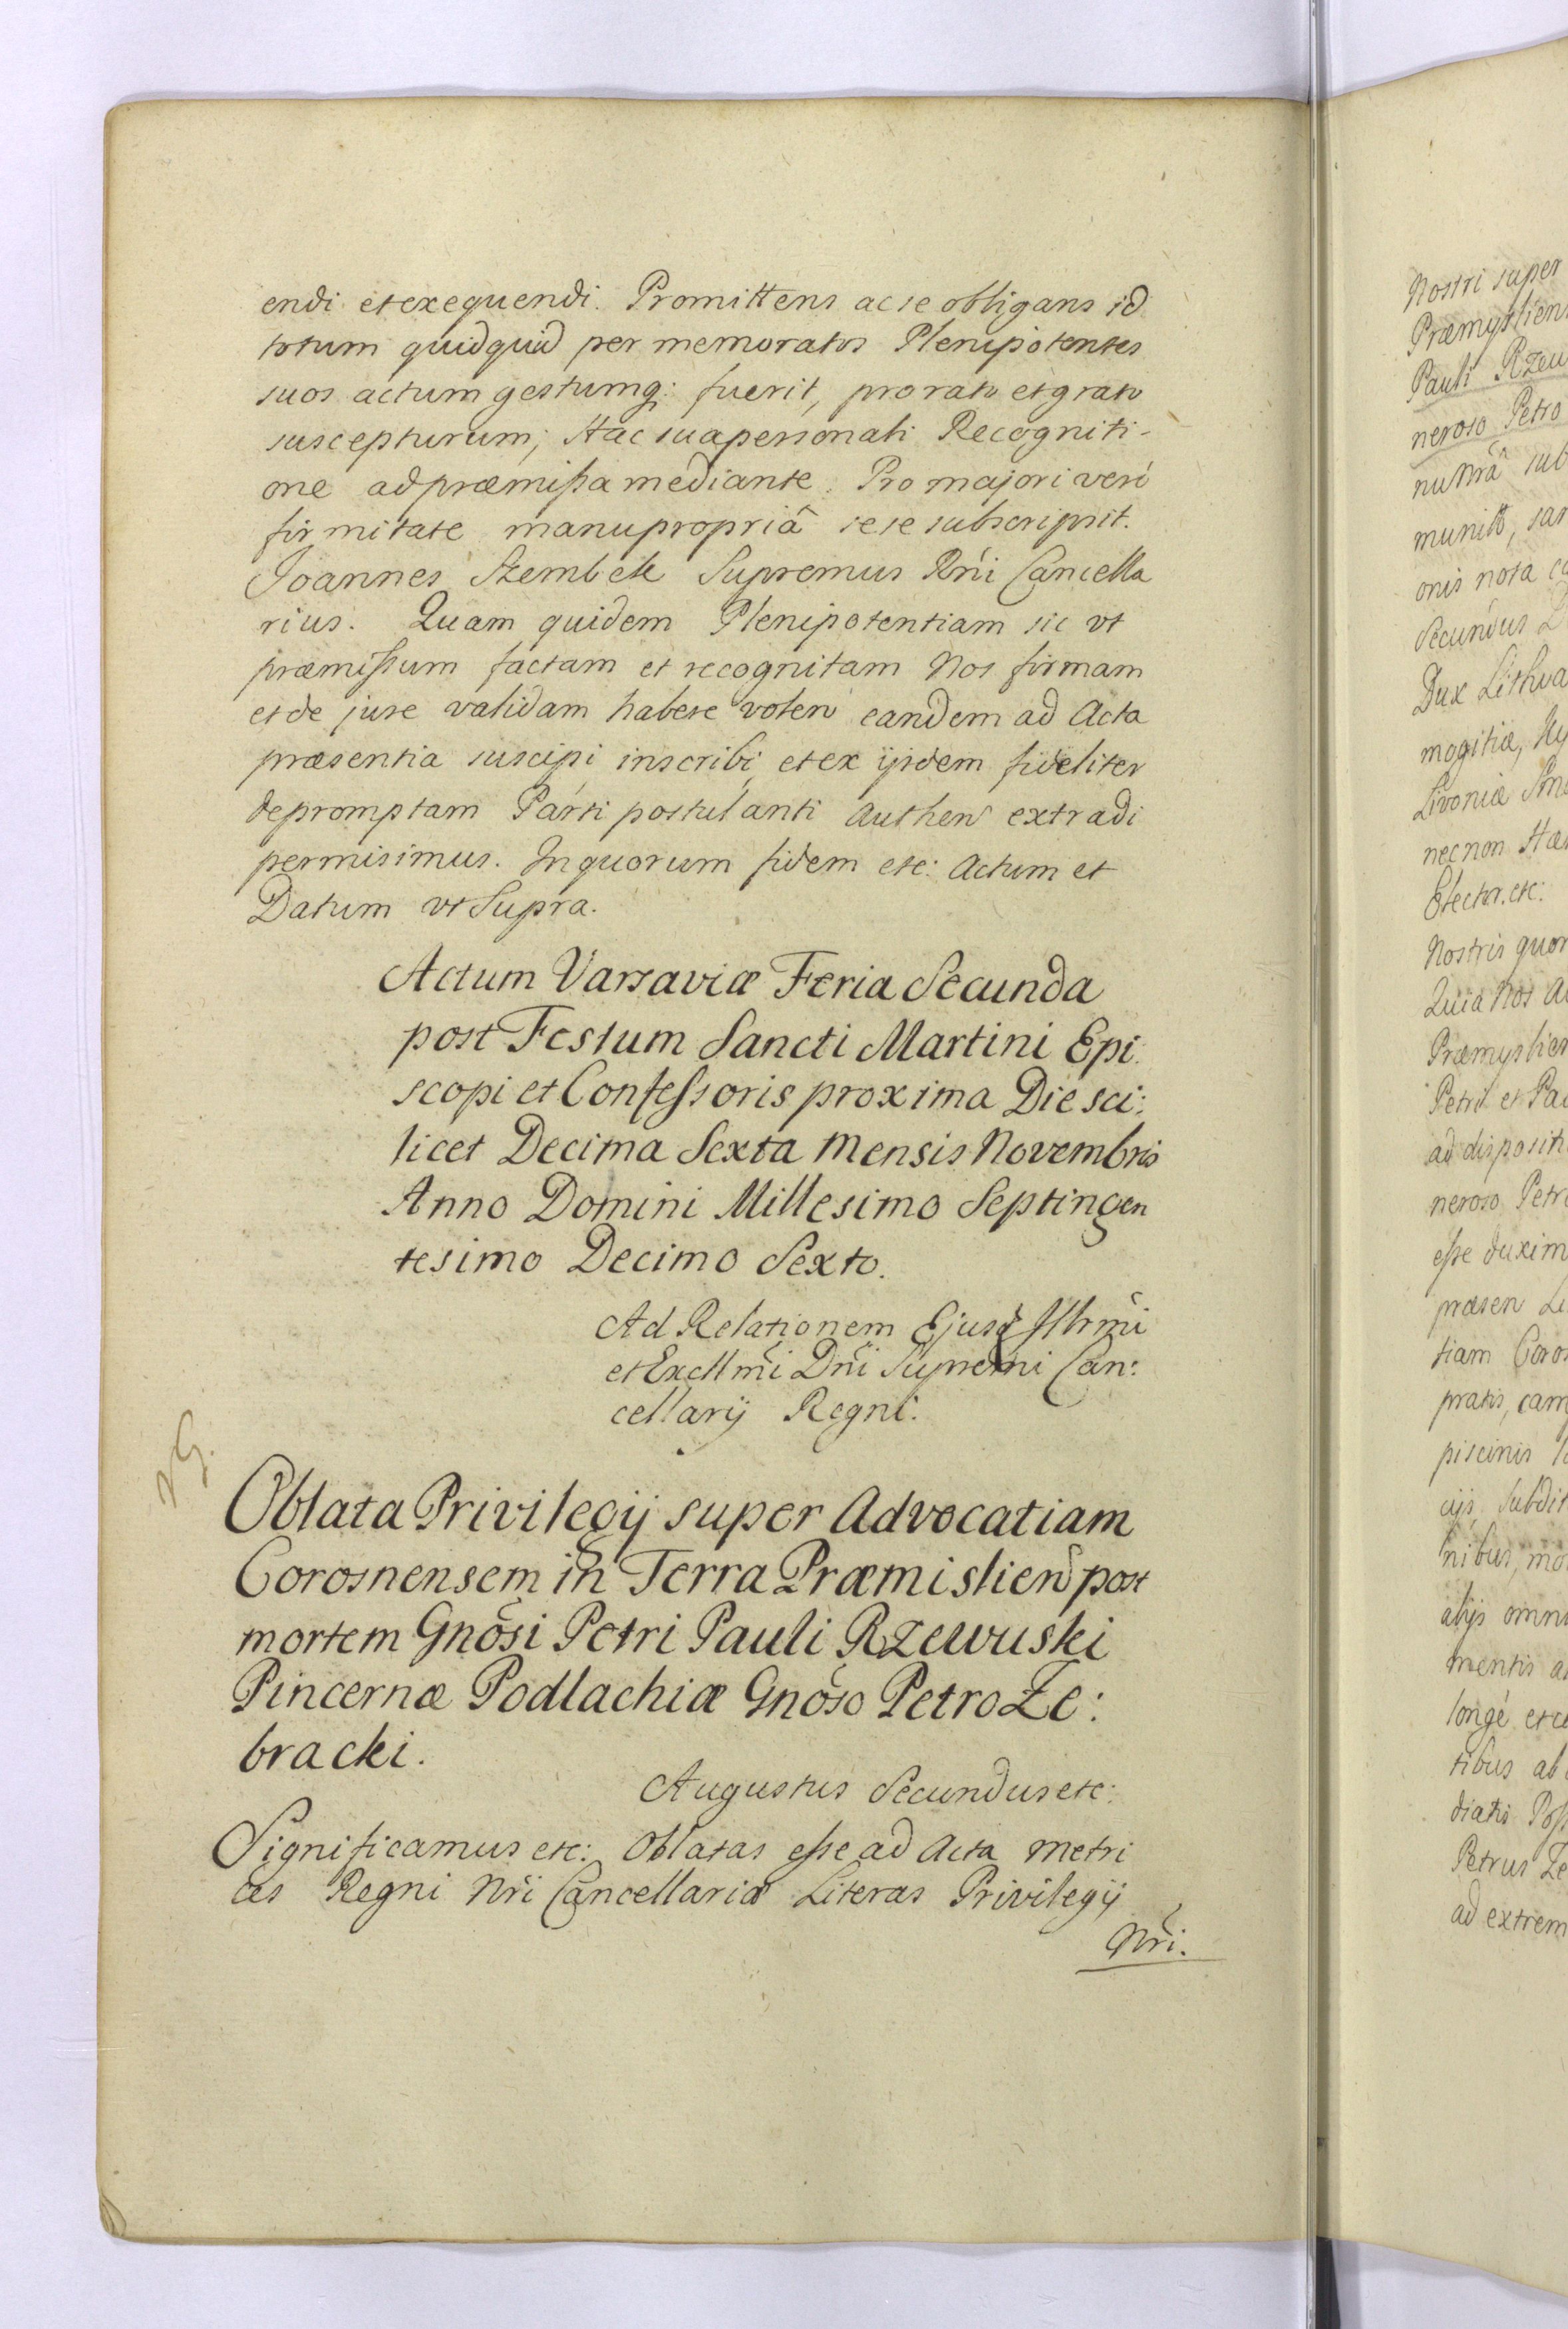 endi et exequendi. Promittens ac se obligans id
totum quidquid per memoratos Plenipotentes
suos actum gestumq: fuerit, pro rato et grato
suscepturum; Hac sua personali Recogniti-
one ad præmissa mediante. Pro majori verò
firmitate manu propriâ sese subscripsit.
Joannes Szembek Supremus Rñi Cancella
rius. Quam quidem Plenipotentiam sic vt
præmissum factam et recognitam Nos firmam
et de jure validam habere volen eandem ad Acta
præsentia suscipi inscribi et ex ijsdem fideliter
depromptam Parti postulanti Authen extradi
permisimus. In quorum fidem etc: Actum et
Datum vt Supra.
Actum Varsaviæ Feria Secunda
post Festum Sancti Martini Epi:
scopi et Confessoris proxima Die sci:
licet Decima Sexta Mensis Novembris
Anno Domini Millesimo Septingen
tesimo Decimo Sexto.
Ad Relationem Ejusd Illrmi
et Excllmi Dni Supremi Can:
cellarij Regni.
Oblata Privilegij super Advocatiam
Corosnensem in Terra Præmislien post
mortem Gnosi Petri Pauli Rzewuski
Pincernæ Podlachiæ Gnoso Petro Ze:
bracki.
Augustus Secundus etc:
Significamus etc: Oblatas esse ad Acta Metri
ces Regni Nri Cancellariæ Literas Privilegij
Nri.
Nostri super
Præmyslien
Pauli Rzew
neroso Petro
nu Nrâ sub
munito, san
onis nota
Secundus
Dux Lithua
mogitiæ,
Livoniæ Smo
necnon Hæ
Elector. etc:
Nostris quor
Quia Nos
Præmyslien
Petri et Pau
ad disposit
neroso Petr
esse duxim
præsen
tiam Coros
pratis, cam
piscinis
cijs, Subdit
nibus, mo
alijs omni
mentis a
longè et
tibus ab
diatis Poss
Petrus Ze
ad extrem